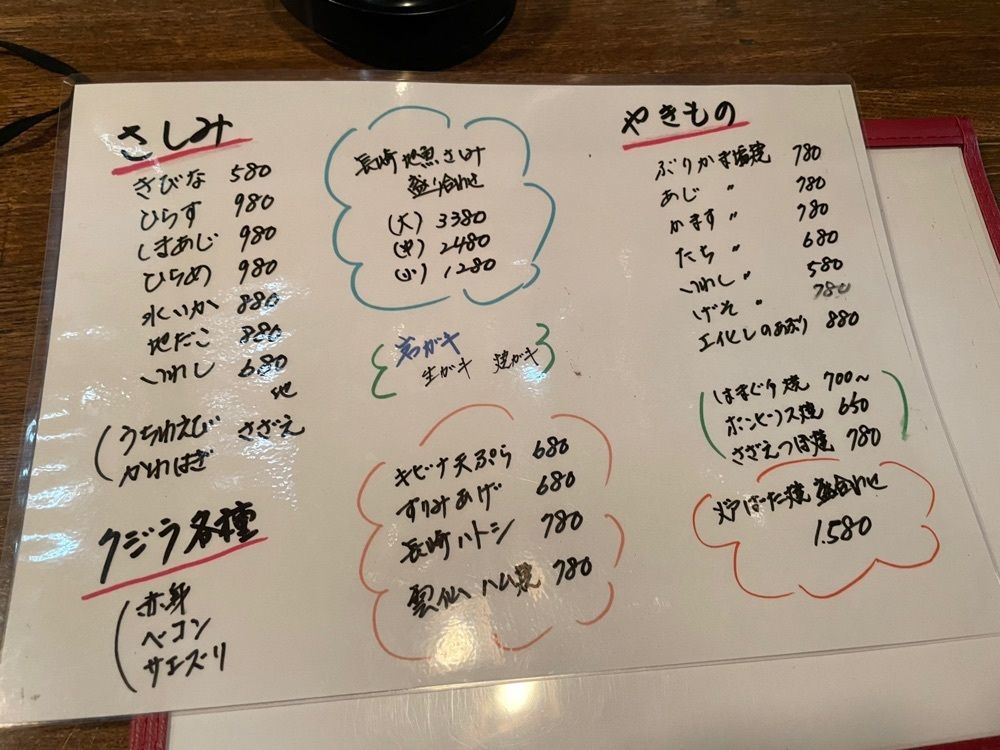 さしみ
きびな 580
ひらす 980
しまあじ 980
ひらめ 980
水いか 880
地だこ 880
いわし 680
地
うちわえび さざえ
かわはぎ
クジラ各種
赤身
ベーコン
サエズリ
長崎地魚さしみ
盛り合わせ
(大) 3380
(中) 2480
(小) 1280
岩ガキ
生ガキ 焼ガキ
キビナ天ぷら 680
すりみあげ 680
長崎ハトシ 780
雲仙ハム焼 780
やきもの
ぶりかま塩焼 780
あじ 〃 780
かます 〃 780
たち 〃 680
いわし 〃 580
げそ 〃 780
エイヒレのあぶり 880
はまぐり焼 700〜
ホンビノス焼 650
さざえつぼ焼 780
炉ばた焼盛合わせ
1.580